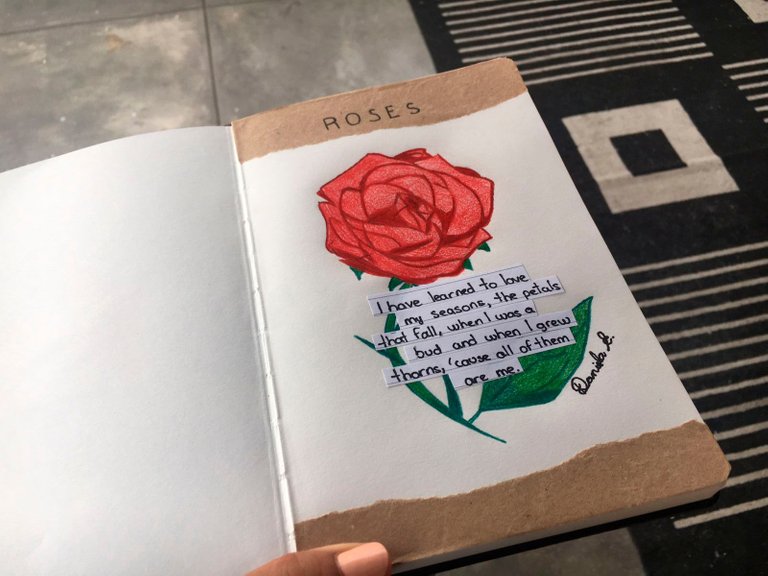 ROSES
I have learned to love
my seasons, the petals
that fall, when I was a
bud and when I grew
thorns, 'cause all of them
are me.